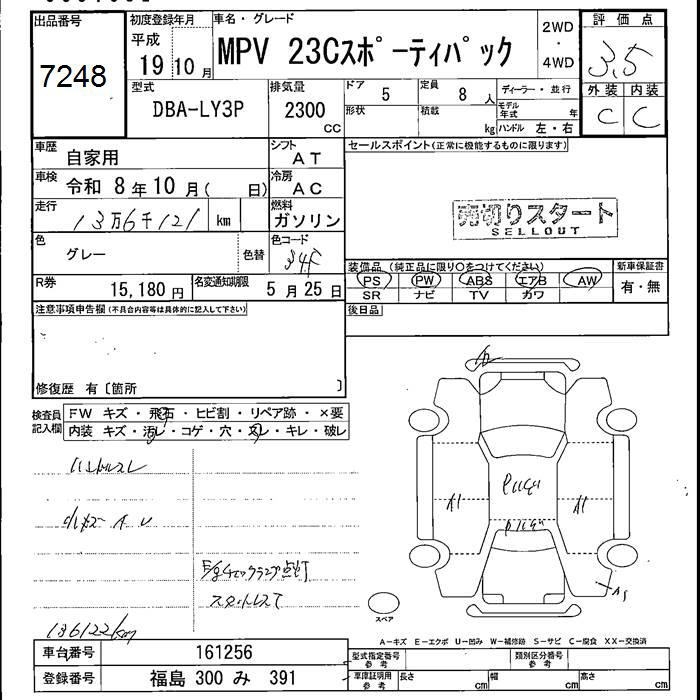 出品番号
7248
初度登録年月
平成
19 10月
車名・グレード
MPV 23Cスポーティパック
2WD
・
4WD
評価点
3.5
外装 内装
C C
型式
DBA-LY3P
排気量
2300
cc
ドア
5
定員
8 人
ディーラー・並行
形状
積載
kg
モデル年式 年
ハンドル 左・右
車歴
自家用
シフト
AT
セールスポイント(正常に機能するものに限ります)
車検
令和 8年10月( 日)
冷房
AC
走行
13万6千121 km
燃料
ガソリン
売切りスタート
SELLOUT
色
グレー
色替
色コード
装備品 (純正品に限り○をつけてください)
新車保証書
PS PW ABS エアB AW
SR ナビ TV カワ
有・無
R券
15,180円
名変通知期限
5月25日
後日品
注意事項申告欄(不具合内容等は具体的に記入して下さい)
修復歴 有〔箇所 〕
検査員記入欄
FW キズ・飛石・ヒビ割・リペア跡・×要
内装 キズ・汚レ・コゲ・穴・スレ・キレ・破レ
ハンドルスレ
A1
A1
E/gチェックランプ点灯
136122km
スペア
A-キズ E-エクボ U-凹み W-補修跡 S-サビ C-腐食 XX-交換済
車台番号
161256
型式指定番号 参考
類別区分番号 参考
登録番号
福島 300 み 391
車庫証明用 参考
長さ cm
幅 cm
高さ cm